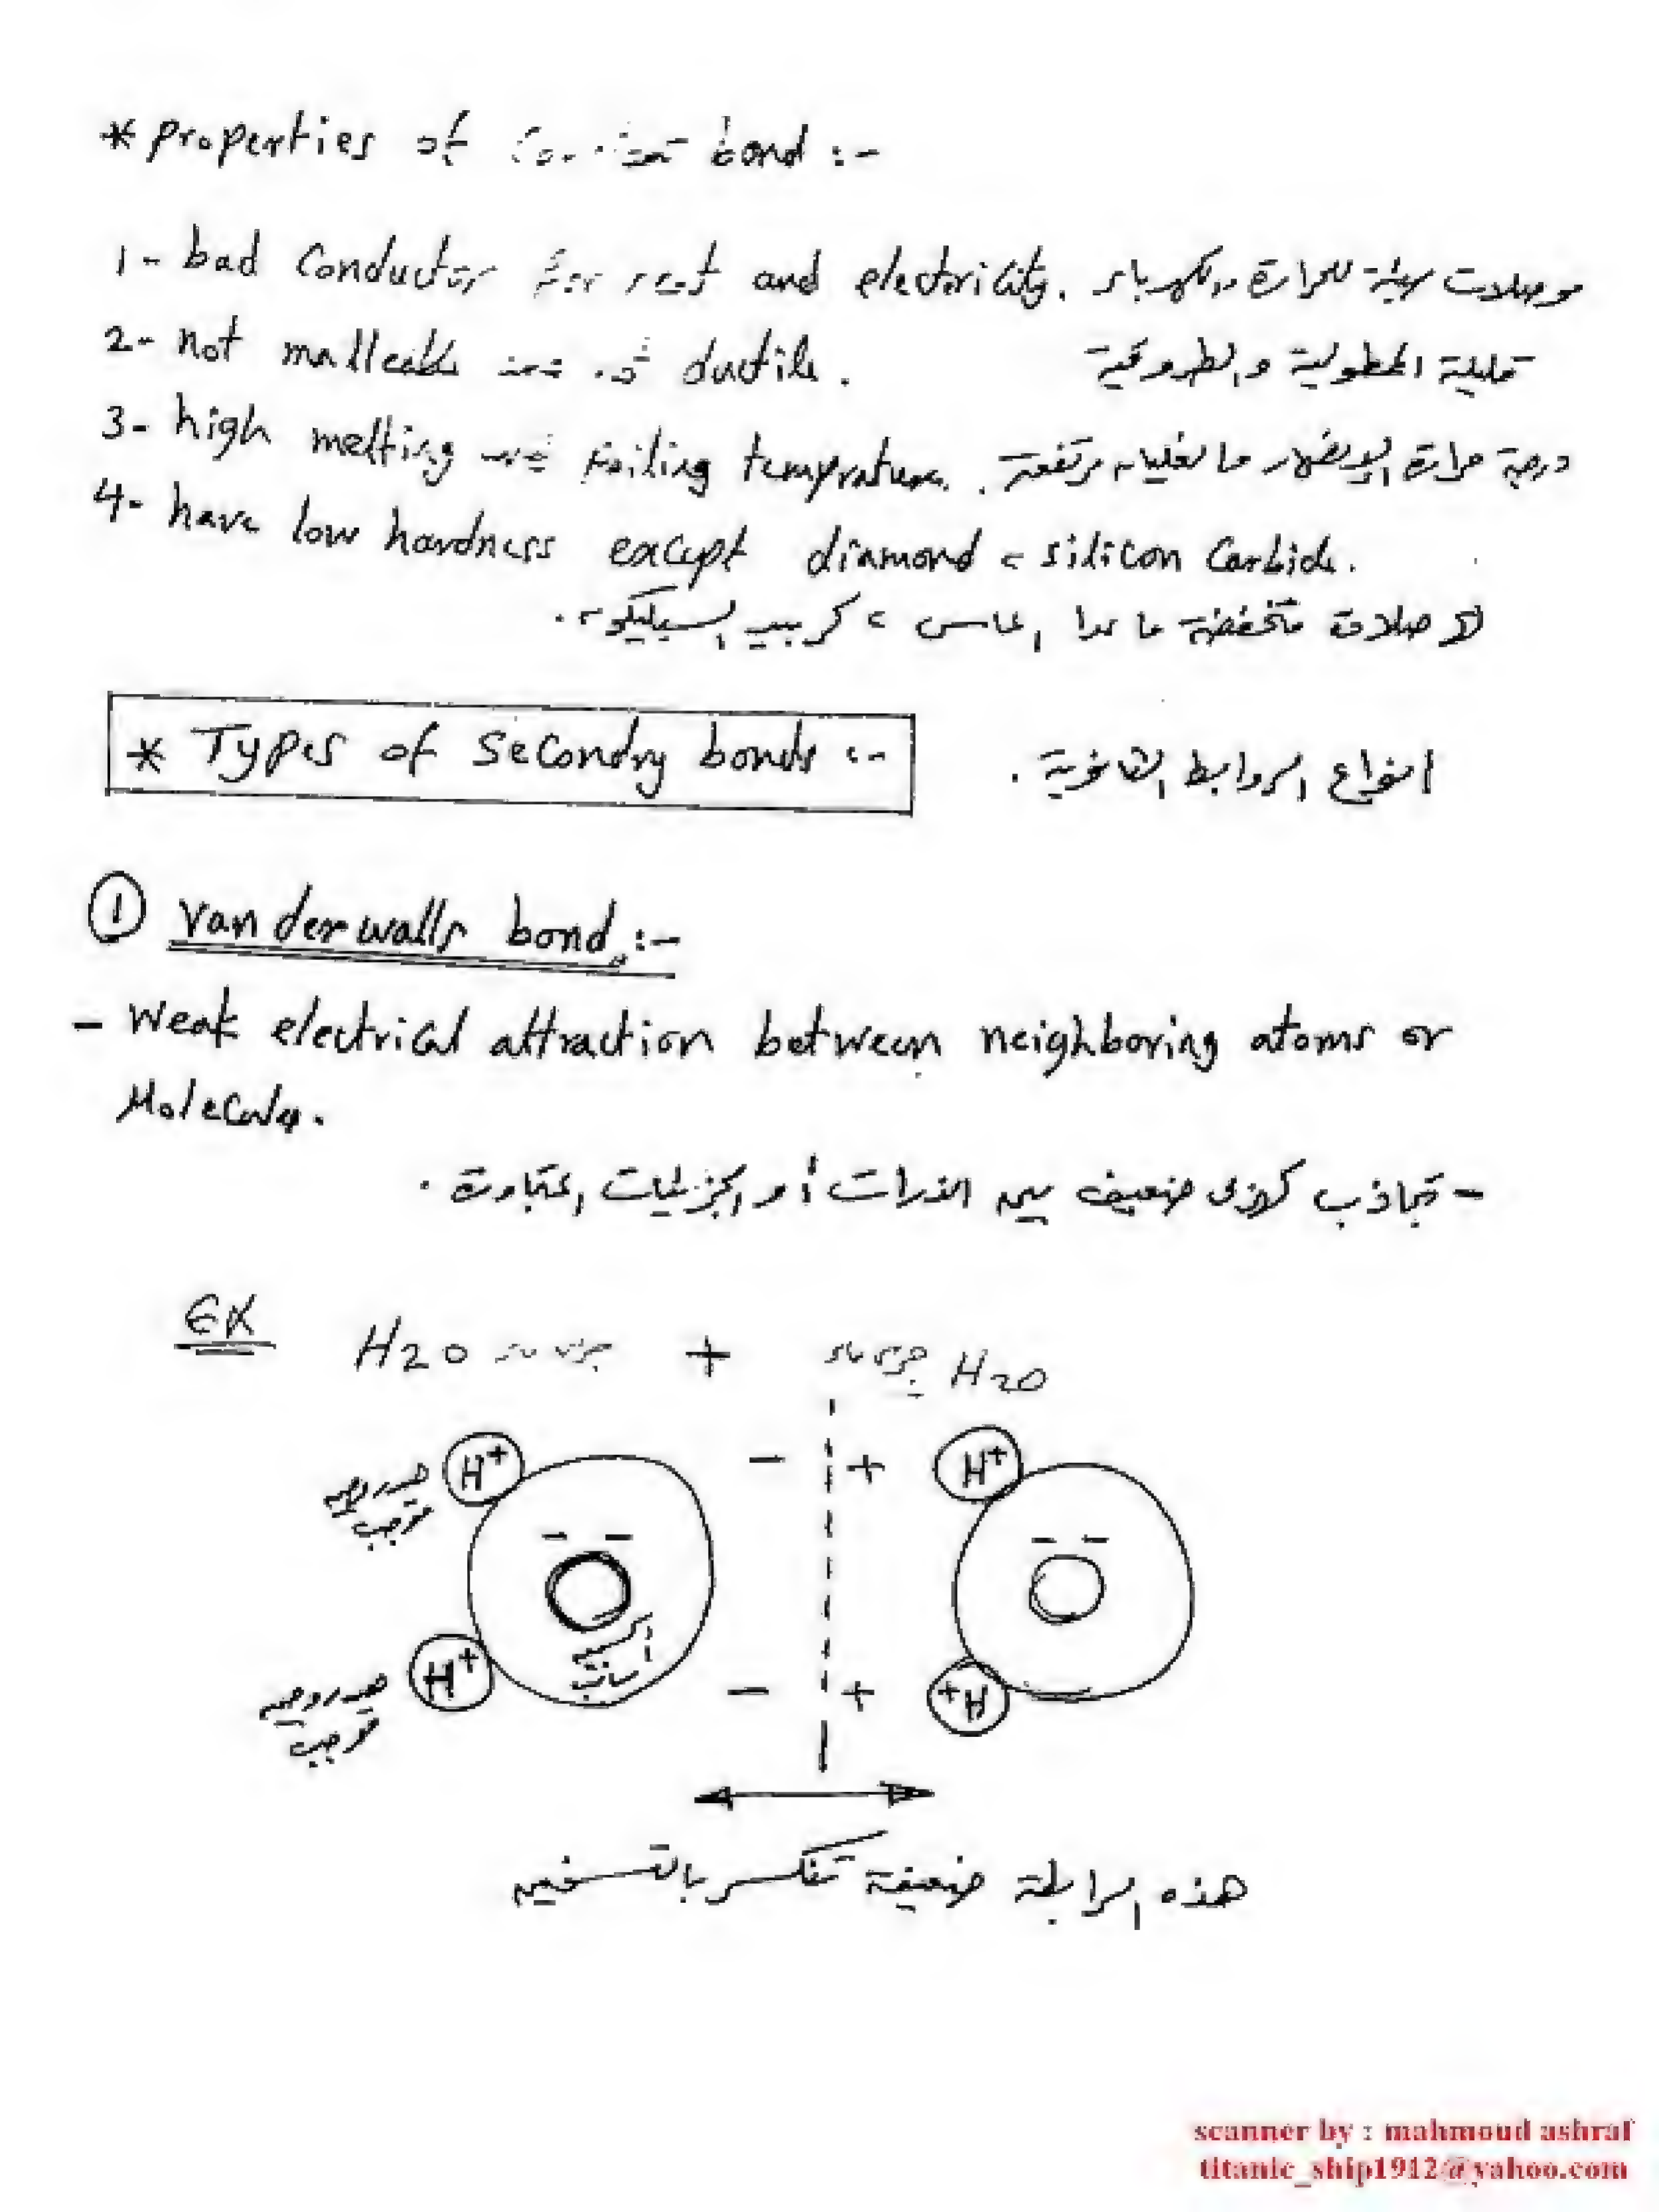 * Properties of bond :-
1- bad Conductor for and electricity. موصلات سيئة للحرارة والكهرباء
2- not malleable ductile. قليلة المطولية والطروقية
3- high melting boiling temprature. درجة حرارة الإنصهار والغليان مرتفعة.
4- have low hardness except diamond c silicon Carbide.
صلادة منخفضة ما عدا الماس ، كربيد السيليكون.
* Types of Secondry bonds :- انواع الروابط الثانوية.
① van der walls bond :-
- Weak electrical attraction between neighboring atoms or
Molecules.
- تجاذب كهربى ضعيف بين الذرات أو الجزيئات المتجاورة.
EX H2O جزئ ماء + جزئ ماء H2O
H+ - + H+
هيدروجين
موجب
- - - -
أكسجين
سالب
H+ - + +H
هيدروجين
موجب
هذه الرابطة ضعيفة تنكسر بالتسخين
scanner by : mahmoud ashraf
titanic_ship1912@yahoo.com